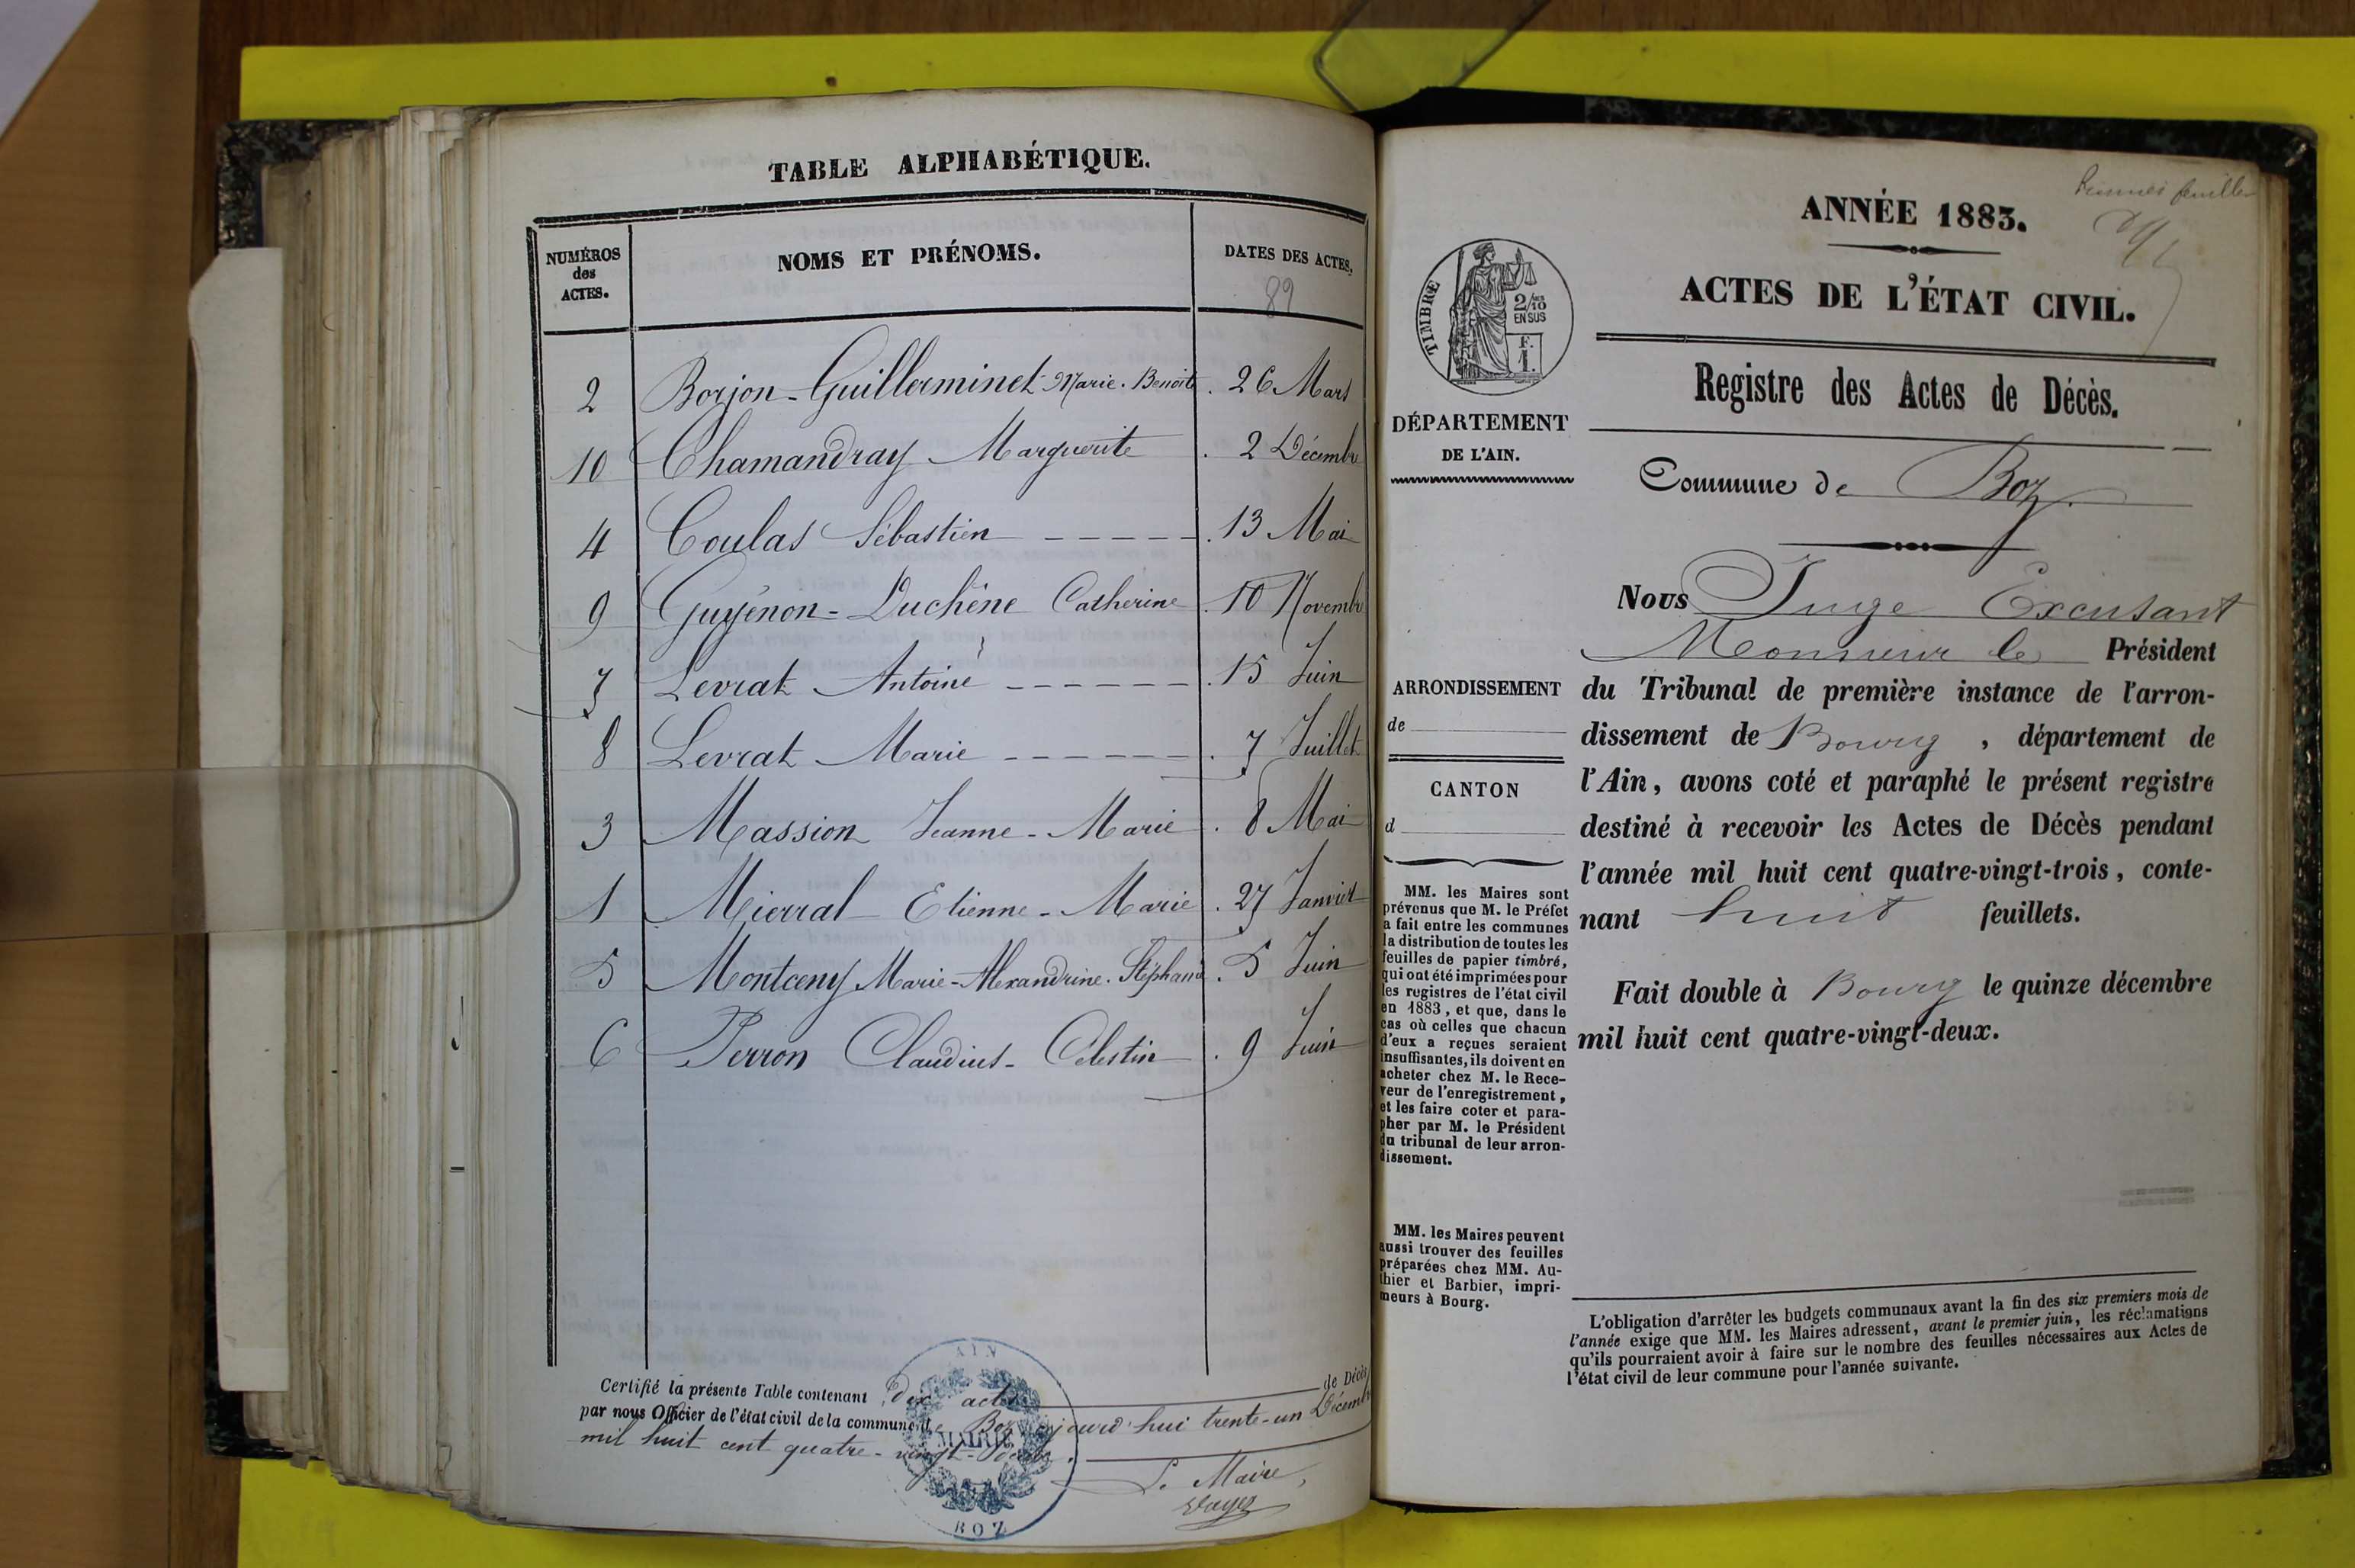 TABLE ALPHABÉTIQUE.
NUMÉROS des ACTES.
NOMS ET PRÉNOMS.
DATES DES ACTES.
82
2 Borjon-Guillerminet Marie-Benoite. 26 Mars
10 Chamandray Marguerite. 2 Décembre
4 Coulas Sébastien - - - - -. 13 Mai
9 Guyénon-Duchêne Catherine. 10 Novembre
7 Levrat Antoine - - - - - -. 15 Juin
8 Levrat Marie - - - - - -. 7 Juillet
3 Massion Jeanne-Marie. 8 Mai
1 Mierral Etienne-Marie. 27 Janvier
5 Montceny Marie-Alexandrine-Stéphanie. 5 Juin
6 Perron Claudius-Célestin. 9 Juin
Certifié la présente Table contenant dix actes de Décès
par nous Officier de l'état civil de la commune de Boz aujourd'hui trente-un Décembre
mil huit cent quatre-vingt-deux.
Le Maire,
AIN
MAIRIE
BOZ
feuilles
ANNÉE 1883.
ACTES DE L'ÉTAT CIVIL.
Registre des Actes de Décès.
Commune de Boz
TIMBRE
2/10
EN SUS
F.
1.
DÉPARTEMENT
DE L'AIN.
ARRONDISSEMENT
de
CANTON
d
MM. les Maires sont
prévenus que M. le Préfet
a fait entre les communes
la distribution de toutes les
feuilles de papier timbré,
qui ont été imprimées pour
les registres de l'état civil
en 1883, et que, dans le
cas où celles que chacun
d'eux a reçues seraient
insuffisantes, ils doivent en
acheter chez M. le Rece-
veur de l'enregistrement,
et les faire coter et para-
pher par M. le Président
du tribunal de leur arron-
dissement.
MM. les Maires peuvent
aussi trouver des feuilles
préparées chez MM. Au-
thier et Barbier, impri-
meurs à Bourg.
Nous Juge Excusant
Monsieur le Président
du Tribunal de première instance de l'arron-
dissement de Bourg, département de
l'Ain, avons coté et paraphé le présent registre
destiné à recevoir les Actes de Décès pendant
l'année mil huit cent quatre-vingt-trois, conte-
nant huit feuillets.
Fait double à Bourg le quinze décembre
mil huit cent quatre-vingt-deux.
L'obligation d'arrêter les budgets communaux avant la fin des six premiers mois de
l'année exige que MM. les Maires adressent, avant le premier juin, les réclamations
qu'ils pourraient avoir à faire sur le nombre des feuilles nécessaires aux Actes de
l'état civil de leur commune pour l'année suivante.